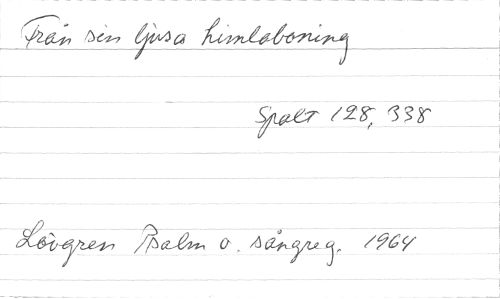 Från sin ljusa himlaboning
Spalt 128, 338
Lövgren Psalm o. sångreg. 1964